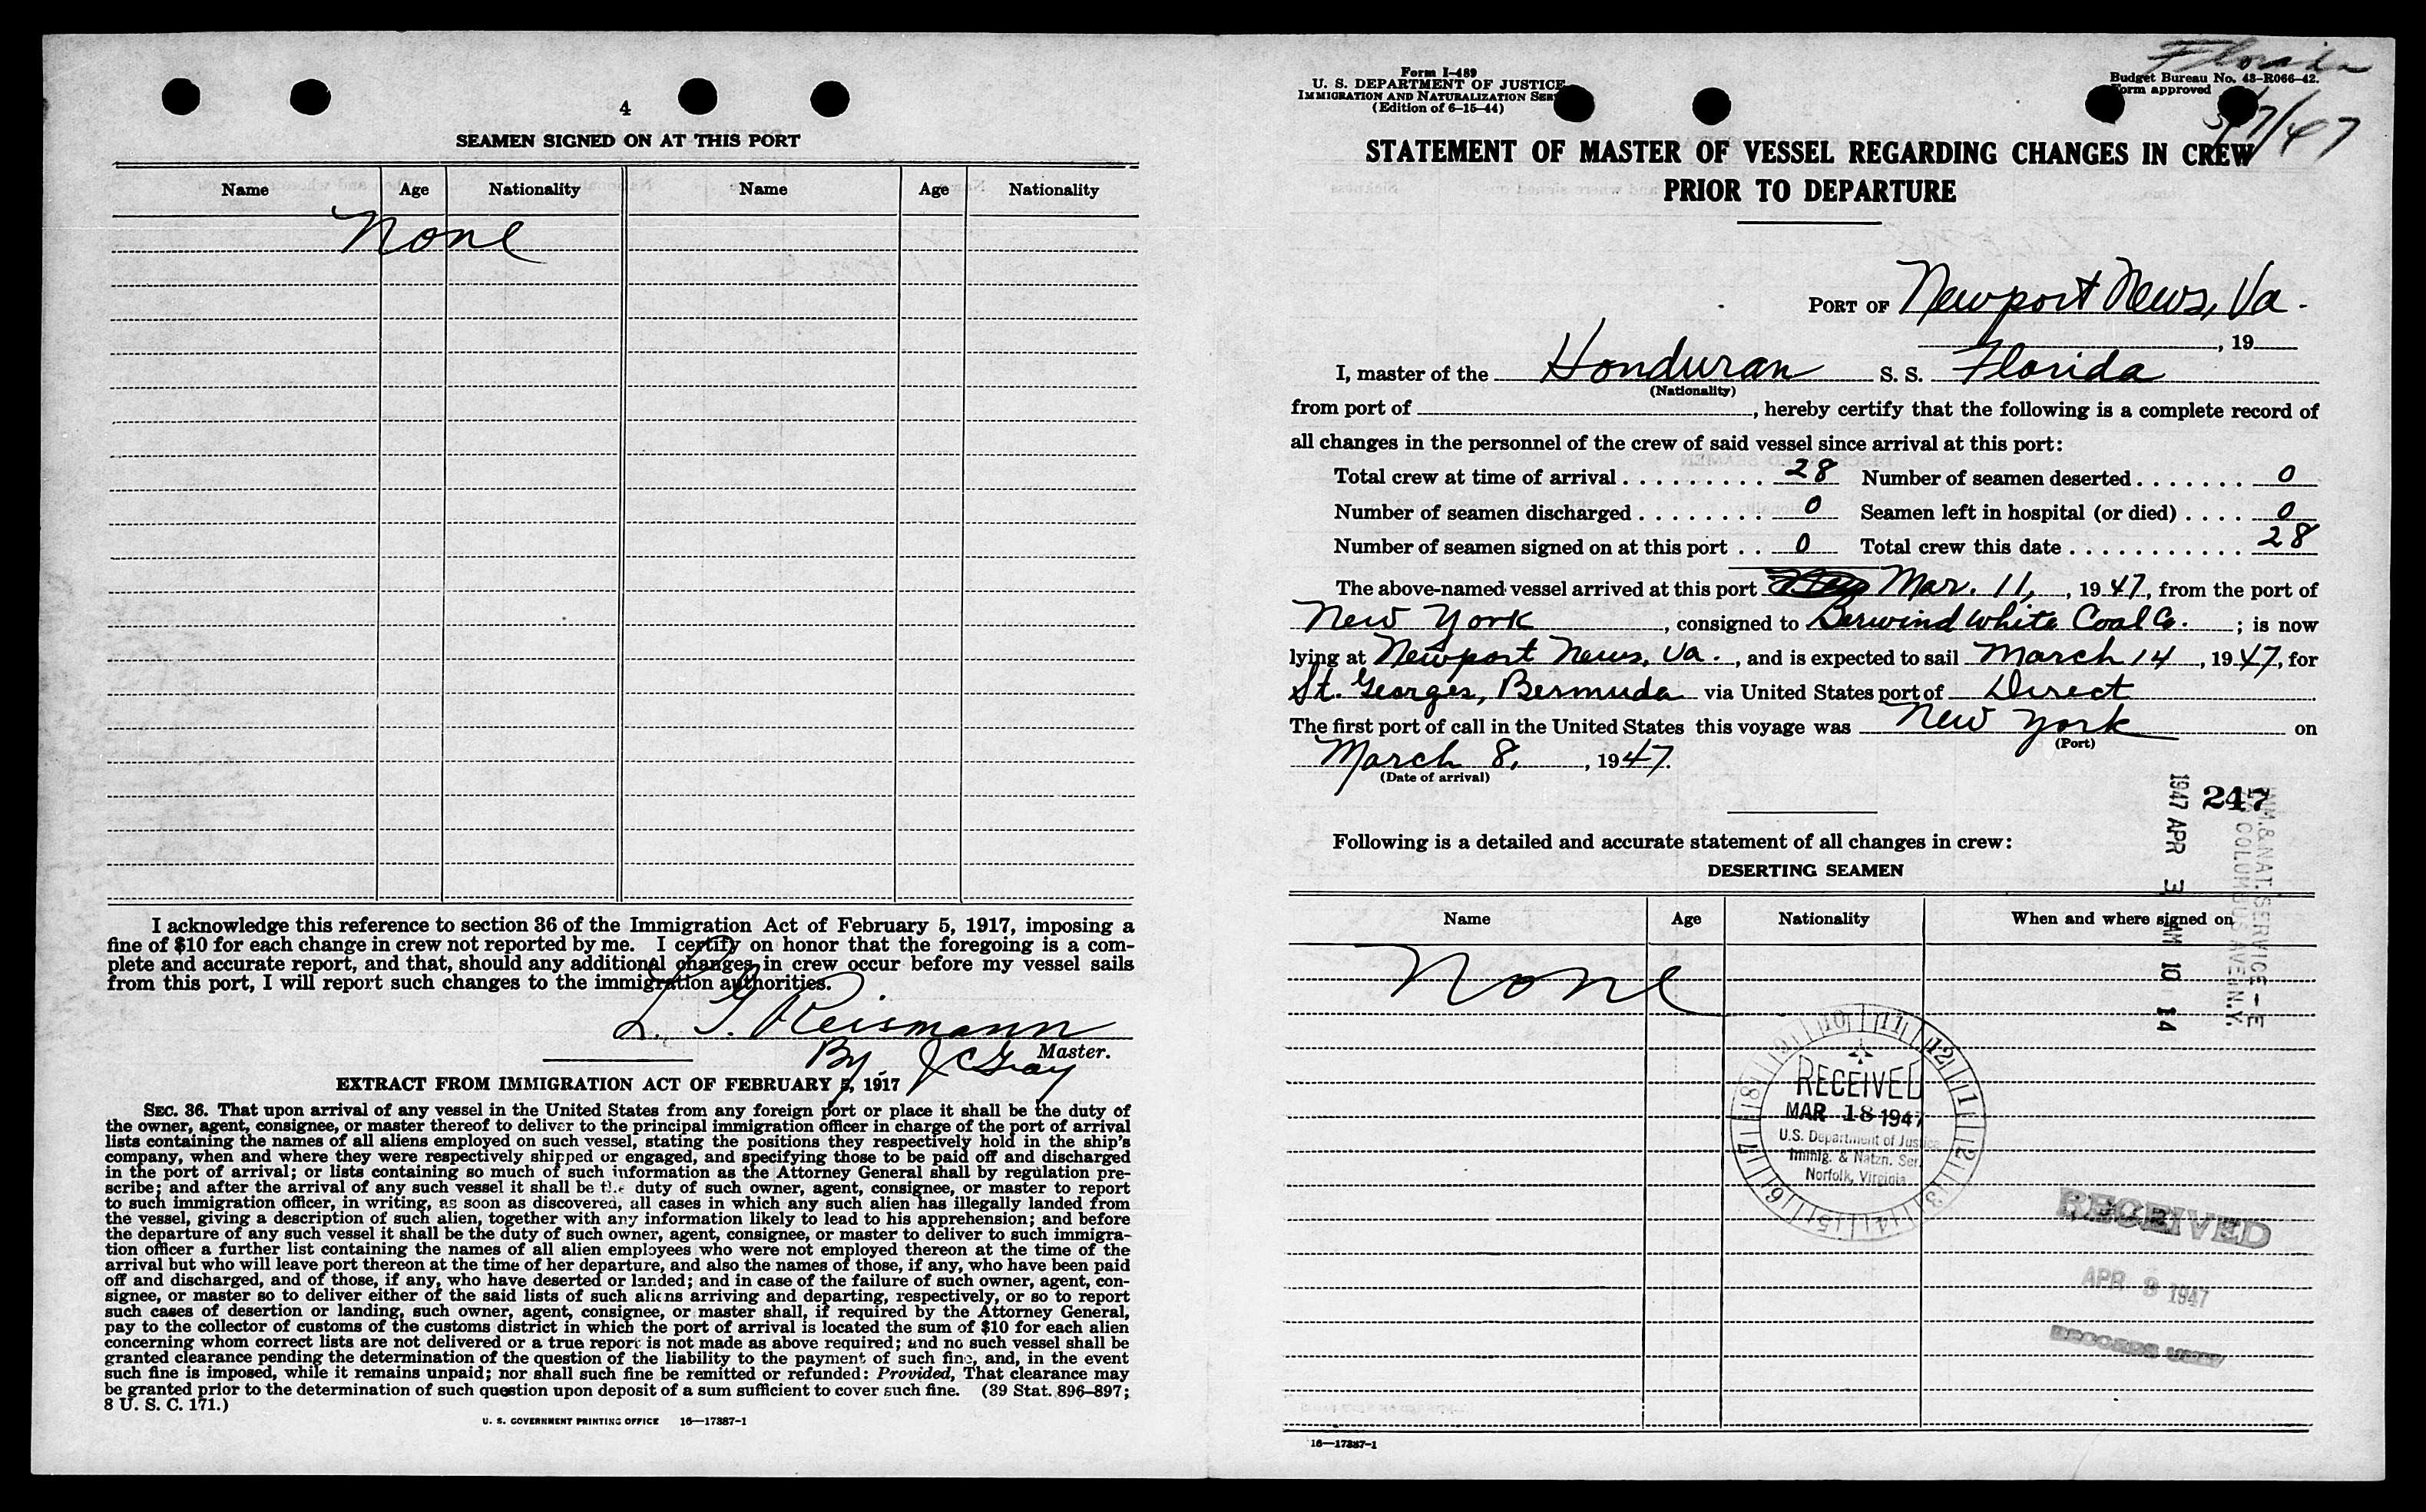 4
SEAMEN SIGNED ON AT THIS PORT
Name Age Nationality Name Age Nationality
None
I acknowledge this reference to section 36 of the Immigration Act of February 5, 1917, imposing a
fine of $10 for each change in crew not reported by me. I certify on honor that the foregoing is a com-
plete and accurate report, and that, should any additional changes in crew occur before my vessel sails
from this port, I will report such changes to the immigration authorities.
L. G. Reismann
Master.
By J C Gray
EXTRACT FROM IMMIGRATION ACT OF FEBRUARY 5, 1917
SEC. 36. That upon arrival of any vessel in the United States from any foreign port or place it shall be the duty of
the owner, agent, consignee, or master thereof to deliver to the principal immigration officer in charge of the port of arrival
lists containing the names of all aliens employed on such vessel, stating the positions they respectively hold in the ship's
company, when and where they were respectively shipped or engaged, and specifying those to be paid off and discharged
in the port of arrival; or lists containing so much of such information as the Attorney General shall by regulation pre-
scribe; and after the arrival of any such vessel it shall be the duty of such owner, agent, consignee, or master to report
to such immigration officer, in writing, as soon as discovered, all cases in which any such alien has illegally landed from
the vessel, giving a description of such alien, together with any information likely to lead to his apprehension; and before
the departure of any such vessel it shall be the duty of such owner, agent, consignee, or master to deliver to such immigra-
tion officer a further list containing the names of all alien employees who were not employed thereon at the time of the
arrival but who will leave port thereon at the time of her departure, and also the names of those, if any, who have been paid
off and discharged, and of those, if any, who have deserted or landed; and in case of the failure of such owner, agent, con-
signee, or master so to deliver either of the said lists of such aliens arriving and departing, respectively, or so to report
such cases of desertion or landing, such owner, agent, consignee, or master shall, if required by the Attorney General,
pay to the collector of customs of the customs district in which the port of arrival is located the sum of $10 for each alien
concerning whom correct lists are not delivered or a true report is not made as above required; and no such vessel shall be
granted clearance pending the determination of the question of the liability to the payment of such fine, and, in the event
such fine is imposed, while it remains unpaid; nor shall such fine be remitted or refunded: Provided, That clearance may
be granted prior to the determination of such question upon deposit of a sum sufficient to cover such fine. (39 Stat. 896–897;
8 U. S. C. 171.)
U. S. GOVERNMENT PRINTING OFFICE 16—17387-1
Form I-489
U. S. DEPARTMENT OF JUSTICE
IMMIGRATION AND NATURALIZATION
(Edition of 6-15-44)
Florida
Budget Bureau No. 43-R066-42.
Form approved
3/7/47
STATEMENT OF MASTER OF VESSEL REGARDING CHANGES IN CREW
PRIOR TO DEPARTURE
PORT OF Newport News, Va.
, 19
I, master of the Honduran S. S. Florida
(Nationality)
from port of , hereby certify that the following is a complete record of
all changes in the personnel of the crew of said vessel since arrival at this port:
Total crew at time of arrival 28 Number of seamen deserted 0
Number of seamen discharged 0 Seamen left in hospital (or died) 0
Number of seamen signed on at this port 0 Total crew this date 28
The above-named vessel arrived at this port Mar. 11, , 1947, from the port of
New York , consigned to Berwind White Coal Co. ; is now
lying at Newport News, Va. , and is expected to sail March 14 , 1947, for
St. Georges, Bermuda via United States port of Direct
The first port of call in the United States this voyage was New York on
(Port)
March 8, , 1947.
(Date of arrival)
247
1947 APR 3 AM 10 14
IMM. & NAT. SERVICE - E
COLUMBUS AVE. N.Y.
Following is a detailed and accurate statement of all changes in crew:
DESERTING SEAMEN
Name Age Nationality When and where signed on
None
10 11 12 1 2 3 4 5 6 7 8 9
RECEIVED
MAR 18 1947
U.S. Department of Justice
Immig. & Natzn. Ser.
Norfolk, Virginia
RECEIVED
APR 8 1947
RECORDS UNIT
16—17387-1